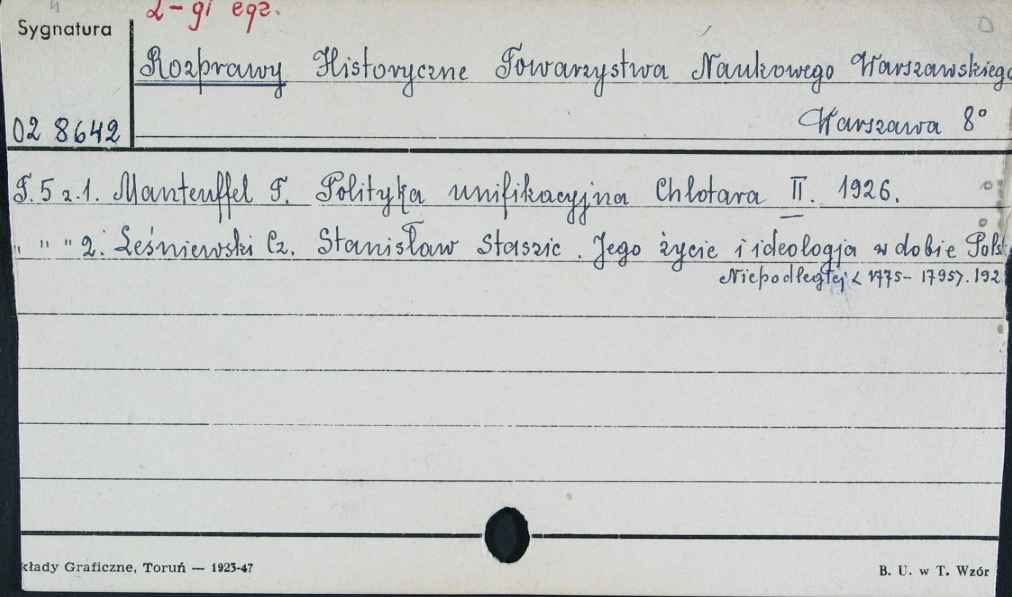 2-gi egz.
Sygnatura
Rozprawy Historyczne Towarzystwa Naukowego Warszawskiego
02 8642
Warszawa 8°
T. 5 z. 1. Manteuffel T. Polityka unifikacyjna Chlotara II. 1926.
" " " 2. Leśniewski Cz. Stanisław Staszic. Jego życie i ideologja w dobie Pols
Niepodległej < 1775-1795>. 192
kłady Graficzne, Toruń — 1923-47
B. U. w T. Wzór